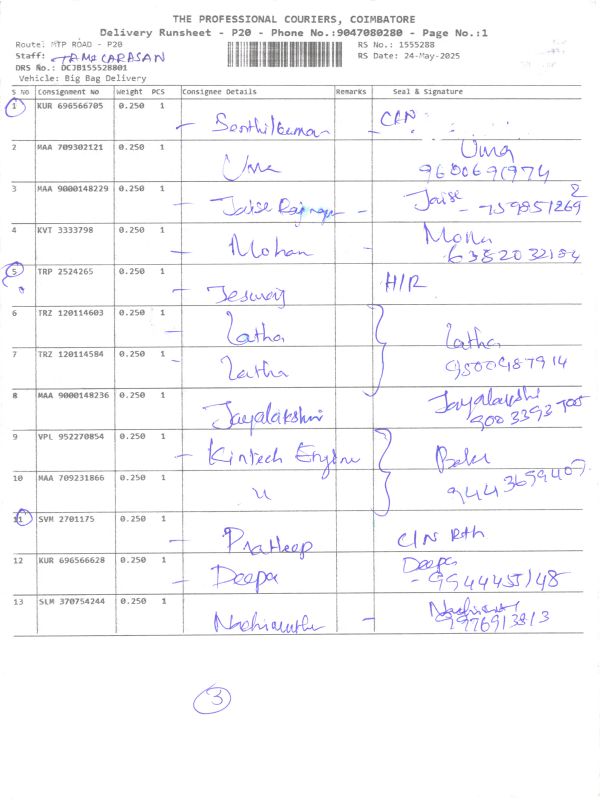 THE PROFESSIONAL COURIERS, COIMBATORE
Delivery Runsheet - P20 - Phone No.:9047080280 - Page No.:1
Route: MTP ROAD - P20
RS No.: 1555288
Staff:
RS Date: 24-May-2025
DRS No.: DCJB155528801
Vehicle: Big Bag Delivery
S No Consignment No Weight PCS Consignee Details Remarks Seal & Signature
1 KUR 696566705 0.250 1 - Senthilkumar
2 MAA 709302121 0.250 1 Uma Uma
9606691974
3 MAA 9000148229 0.250 1 - -
4 KVT 3333798 0.250 1 - Mohan -
6382032184
5 TRP 2524265 0.250 1 -
6 TRZ 120114603 0.250 1 - Latha Latha
7 TRZ 120114584 0.250 1 - Latha
8 MAA 9000148236 0.250 1 Jayalakshmi
9003393705
9 VPL 952270854 0.250 1 - Kintech
10 MAA 709231866 0.250 1 "
9443659409
11 SVM 2701175 0.250 1 - Pratheep
12 KUR 696566628 0.250 1 - Deepa Deepa
- 9944455148
13 SLM 370754244 0.250 1 -
9976913813
3